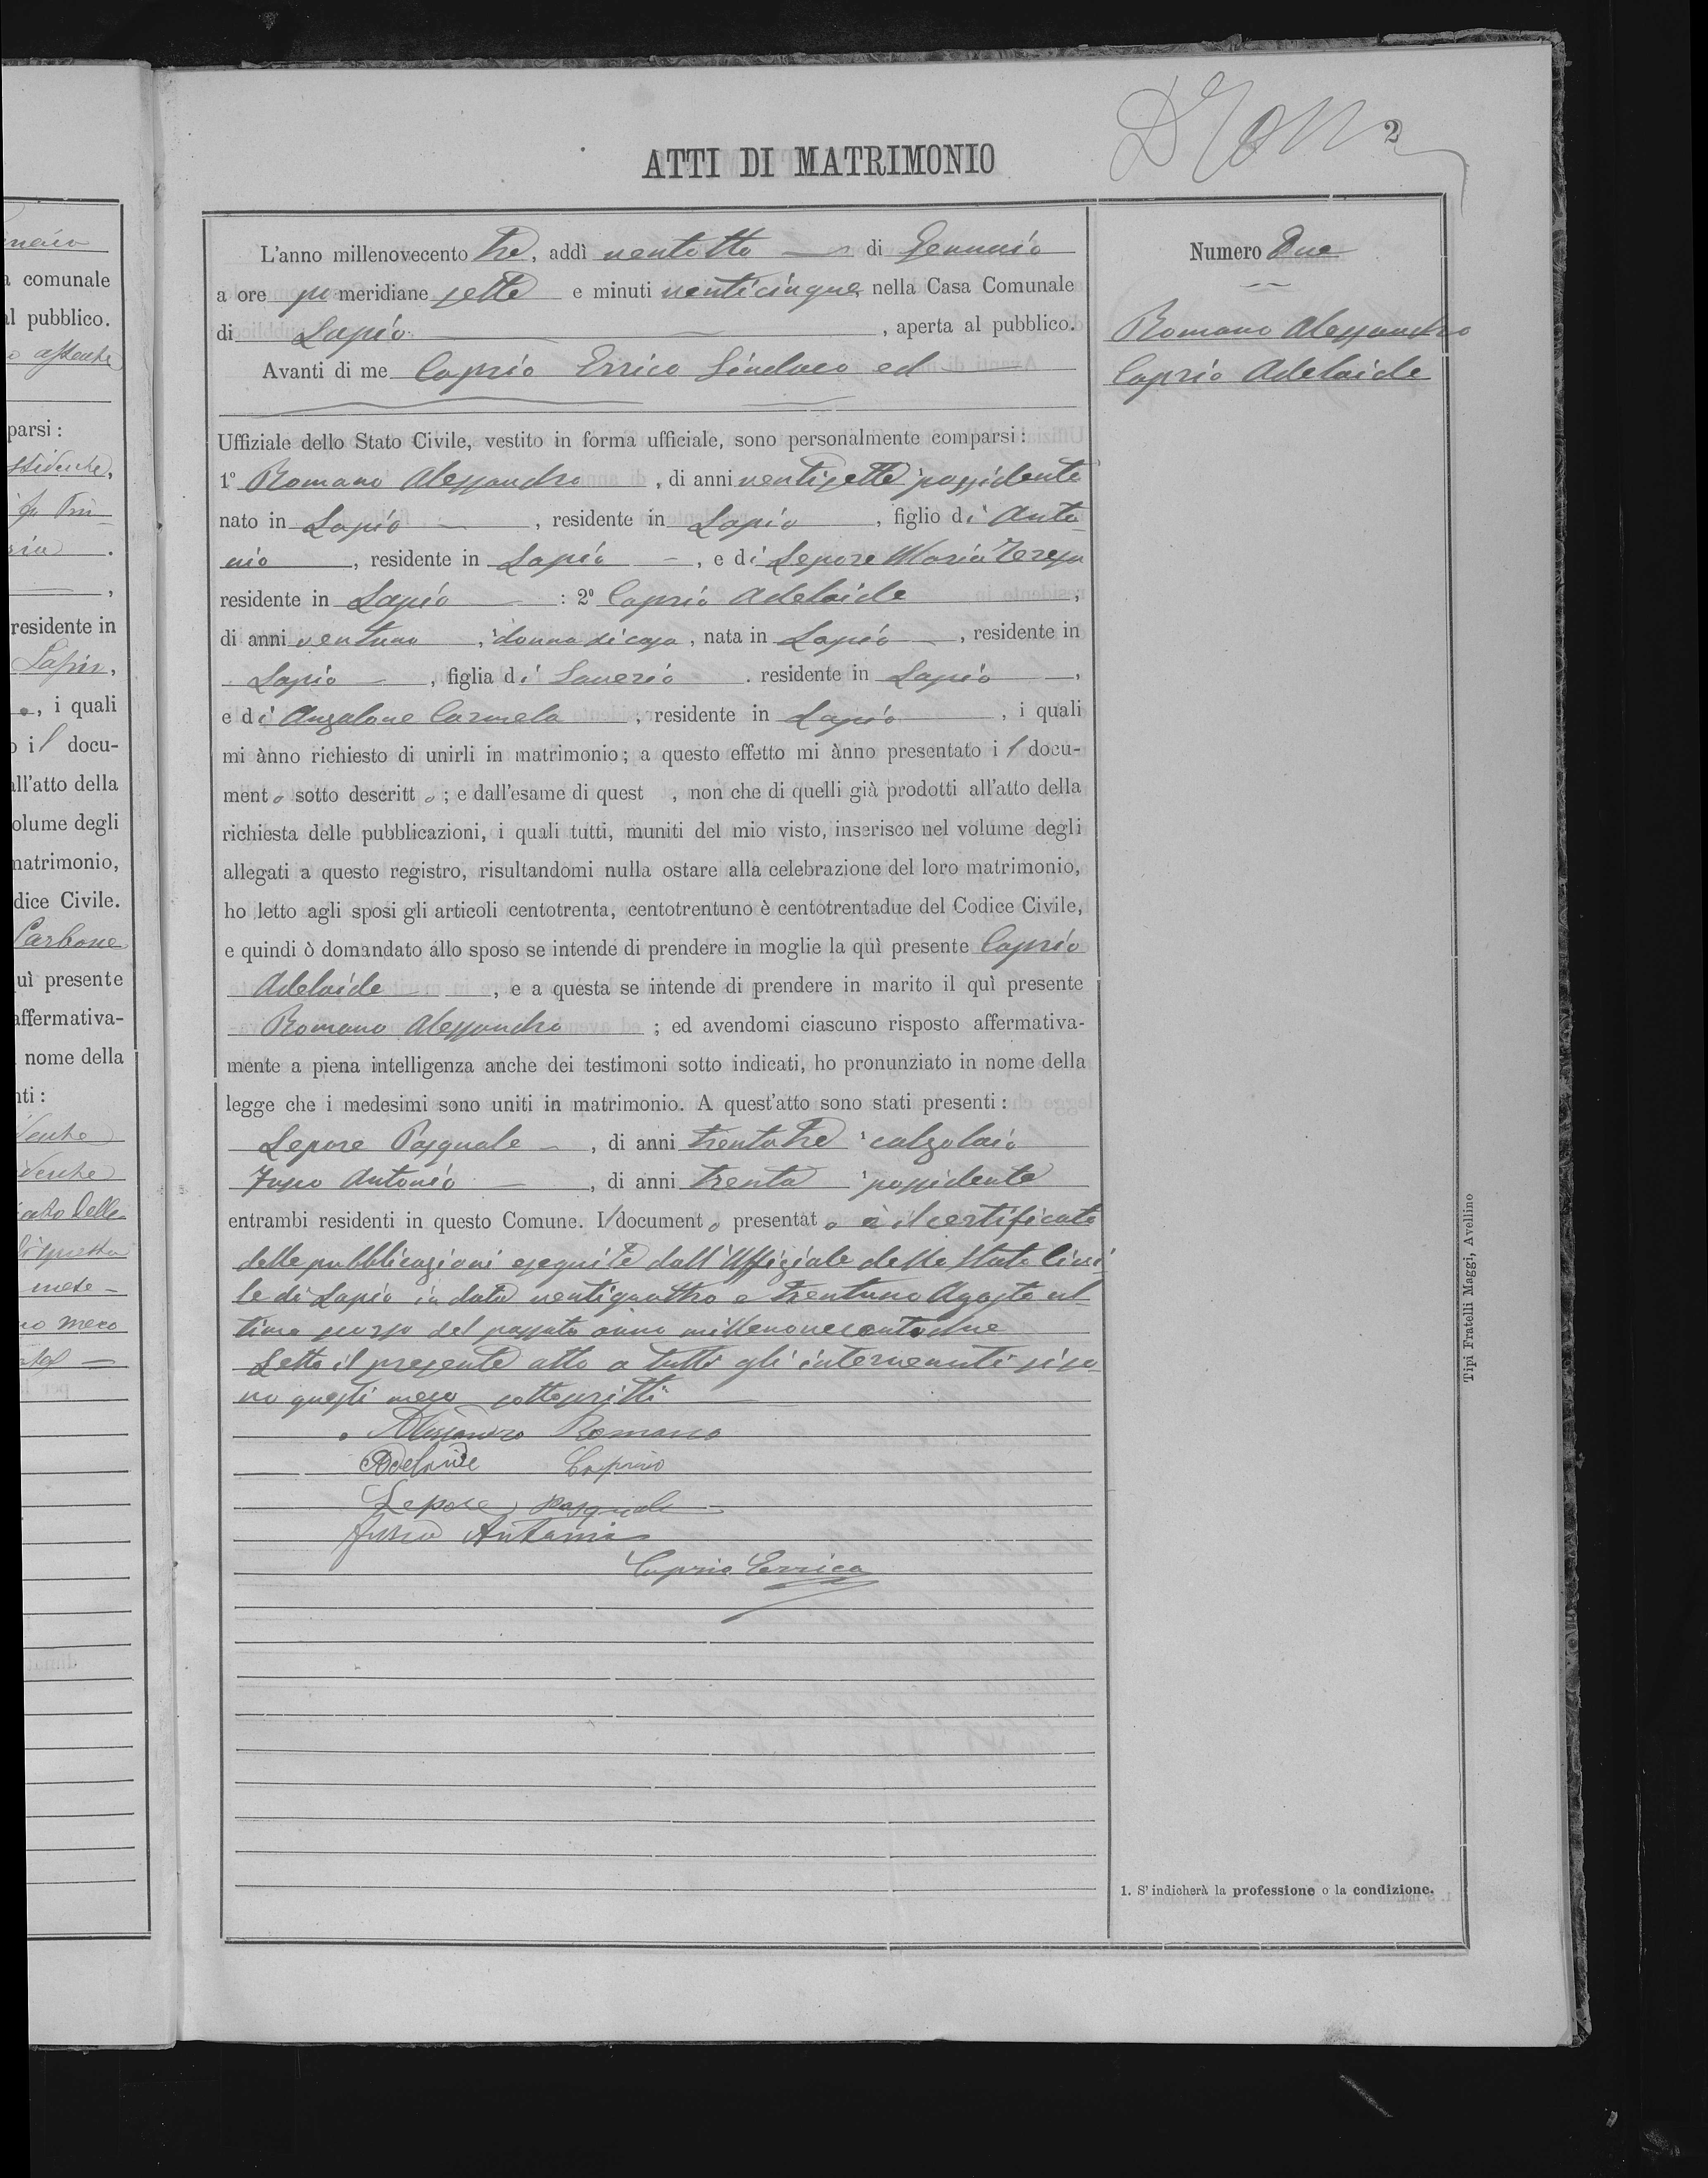 2
ATTI DI MATRIMONIO
Numero Due
Romano Alessandro
Caprio Adelaide
L'anno millenovecento tre, addì ventotto di Gennaio
a ore po meridiane sette e minuti venticinque, nella Casa Comunale
di Lapio, aperta al pubblico.
Avanti di me Caprio Errico Sindaco ed
Uffiziale dello Stato Civile, vestito in forma ufficiale, sono personalmente comparsi:
1° Romano Alessandro, di anni ventisette ¹possidente
nato in Lapio, residente in Lapio, figlio di Anto-
nio, residente in Lapio, e di Lepore Maria Teresa
residente in Lapio: 2° Caprio Adelaide,
di anni ventuno, ¹donna di casa, nata in Lapio, residente in
Lapio, figlia di Saverio. residente in Lapio,
e di Anzalone Carmela, residente in Lapio, i quali
mi ànno richiesto di unirli in matrimonio; a questo effetto mi ànno presentato il docu-
mento sotto descritto; e dall'esame di quest , non che di quelli già prodotti all'atto della
richiesta delle pubblicazioni, i quali tutti, muniti del mio visto, inserisco nel volume degli
allegati a questo registro, risultandomi nulla ostare alla celebrazione del loro matrimonio,
ho letto agli sposi gli articoli centotrenta, centotrentuno è centotrentadue del Codice Civile,
e quindi ò domandato allo sposo se intende di prendere in moglie la quì presente Caprio
Adelaide, e a questa se intende di prendere in marito il quì presente
Romano Alessandro; ed avendomi ciascuno risposto affermativa-
mente a piena intelligenza anche dei testimoni sotto indicati, ho pronunziato in nome della
legge che i medesimi sono uniti in matrimonio. A quest'atto sono stati presenti:
Lepore Pasquale, di anni trentatre ¹calzolaio
Fusco Antonio, di anni trenta ¹possidente
entrambi residenti in questo Comune. Il documento presentato è il certificato
delle pubblicazioni eseguite dall'Uffiziale dello Stato Civi-
le di Lapio in data ventiquattro e trentuno Agosto ul-
timo scorso del passato anno millenovecentodue
Letto il presente atto a tutti gli intervenuti si so-
no questi meco sottoscritti
Alessandro Romano
Adelaide Caprio
Lepore Pasquale
Fusco Antonio
Caprio Errico
1. S'indicherà la professione o la condizione.
Tipi Fratelli Maggi, Avellino
comunale
al pubblico.
assente
parsi:
residente in
Lapio,
, i quali
il docu-
all'atto della
volume degli
matrimonio,
dice Civile.
Carbone
quì presente
affermativa-
nome della
nti:
meco